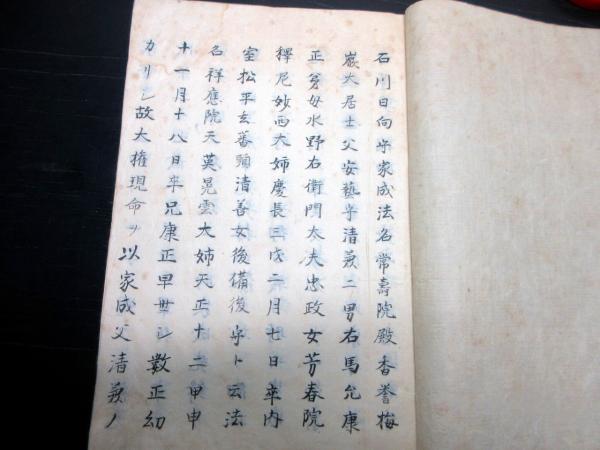 石川日向守家成法名常壽院殿香誉梅
巌大居士父安藝守清兼二男右馬允康
正弟母水野右衛門太夫忠政女芳春院
釋尼妙西大姉慶長三戊二月七日卒内
室松平玄蕃頭清善女後備後守ト云法
名祥應院天英晃雲大姉天正十二甲申
十一月十八日卒兄康正早世シ數正幼
カリシ故大権現命ヲ以家成父清兼ノ